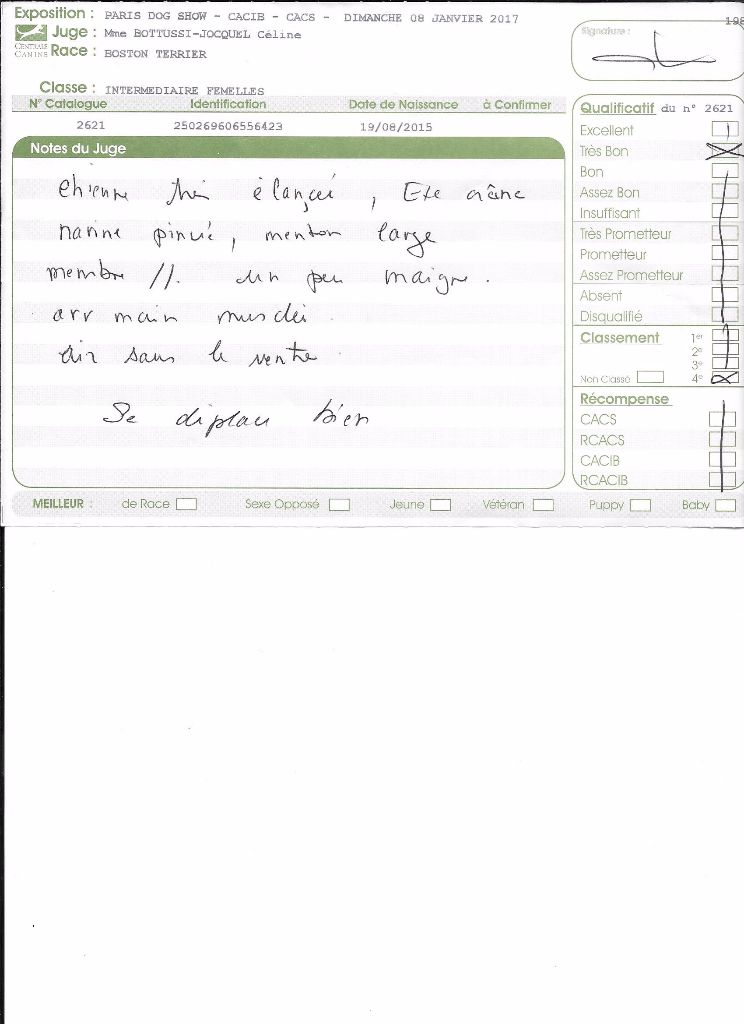 Exposition : PARIS DOG SHOW - CACIB - CACS - DIMANCHE 08 JANVIER 2017
Juge : Mme BOTTUSSI-JOCQUEL Céline
CENTRALE CANINE
Race : BOSTON TERRIER
Classe : INTERMEDIAIRE FEMELLES
N° Catalogue Identification Date de Naissance à Confirmer
2621 250269606556423 19/08/2015
Notes du Juge
chienne très élancée, Exe crâne
narine pincée, menton large
membre //. un peu maigre.
arr main musclé
cuir sans le ventre
Se déplace bien
Signature :
198
Qualificatif du n° 2621
Excellent
Très Bon
Bon
Assez Bon
Insuffisant
Très Prometteur
Prometteur
Assez Prometteur
Absent
Disqualifié
Classement 1er
2e
3e
Non Classé 4e
Récompense
CACS
RCACS
CACIB
RCACIB
MEILLEUR : de Race Sexe Opposé Jeune Vétéran Puppy Baby